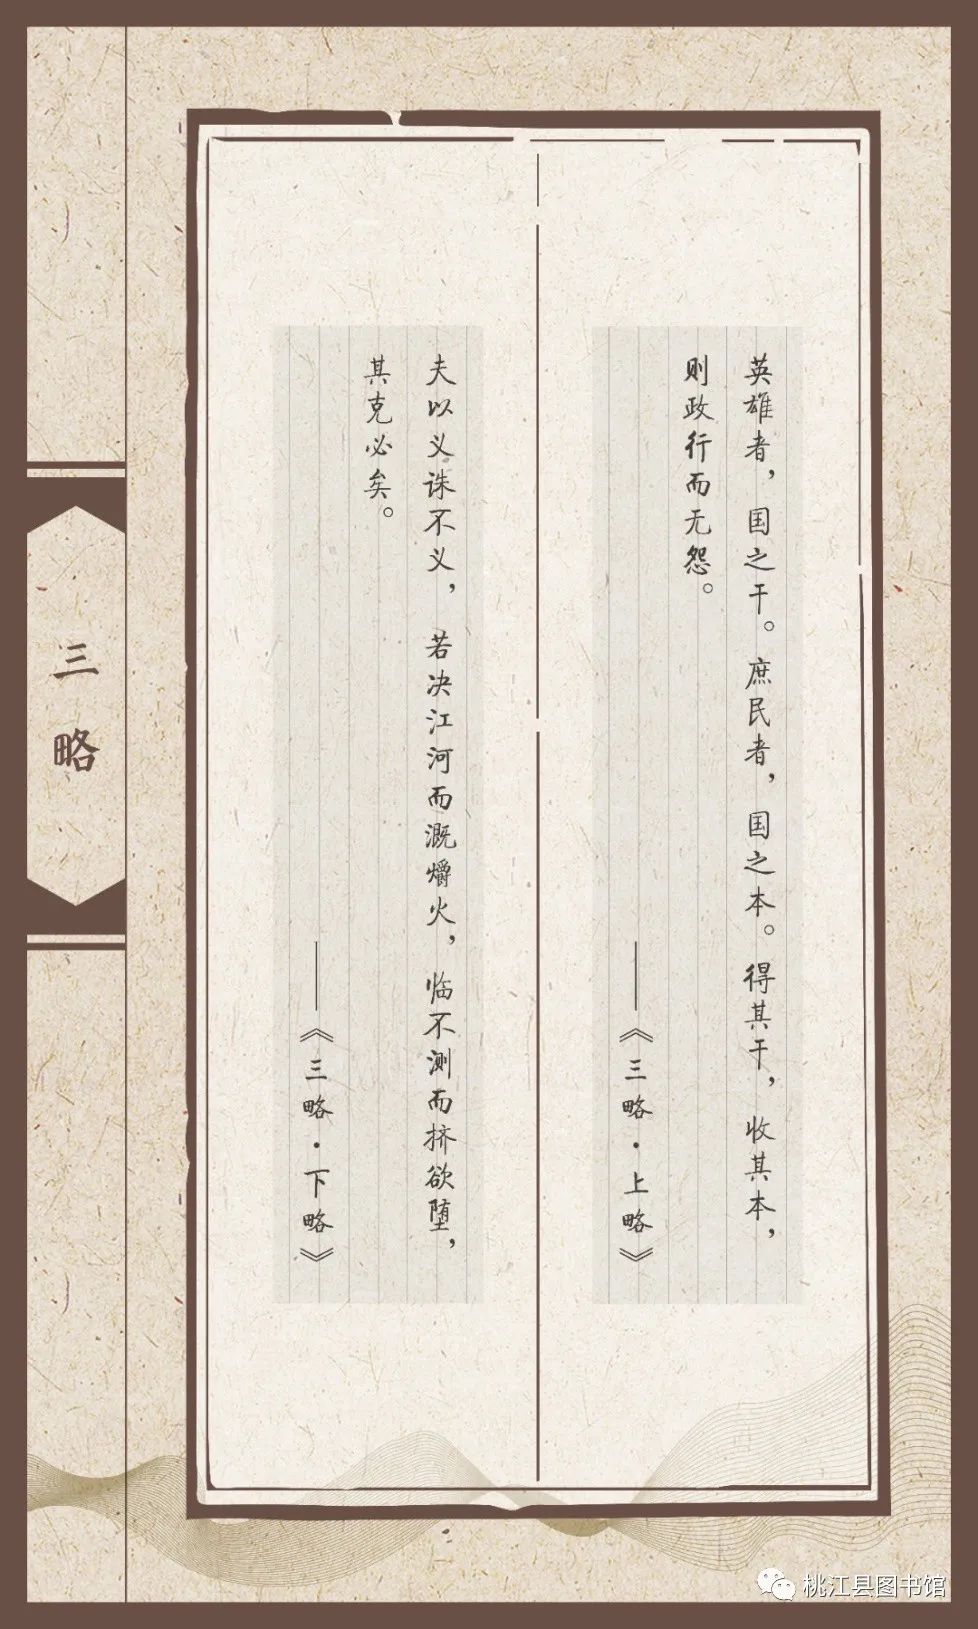 英雄者，国之干。庶民者，国之本。得其干，收其本，
则政行而无怨。
——《三略·上略》
夫以义诛不义，若决江河而溉爝火，临不测而挤欲堕，
其克必矣。
——《三略·下略》
三略
桃江县图书馆